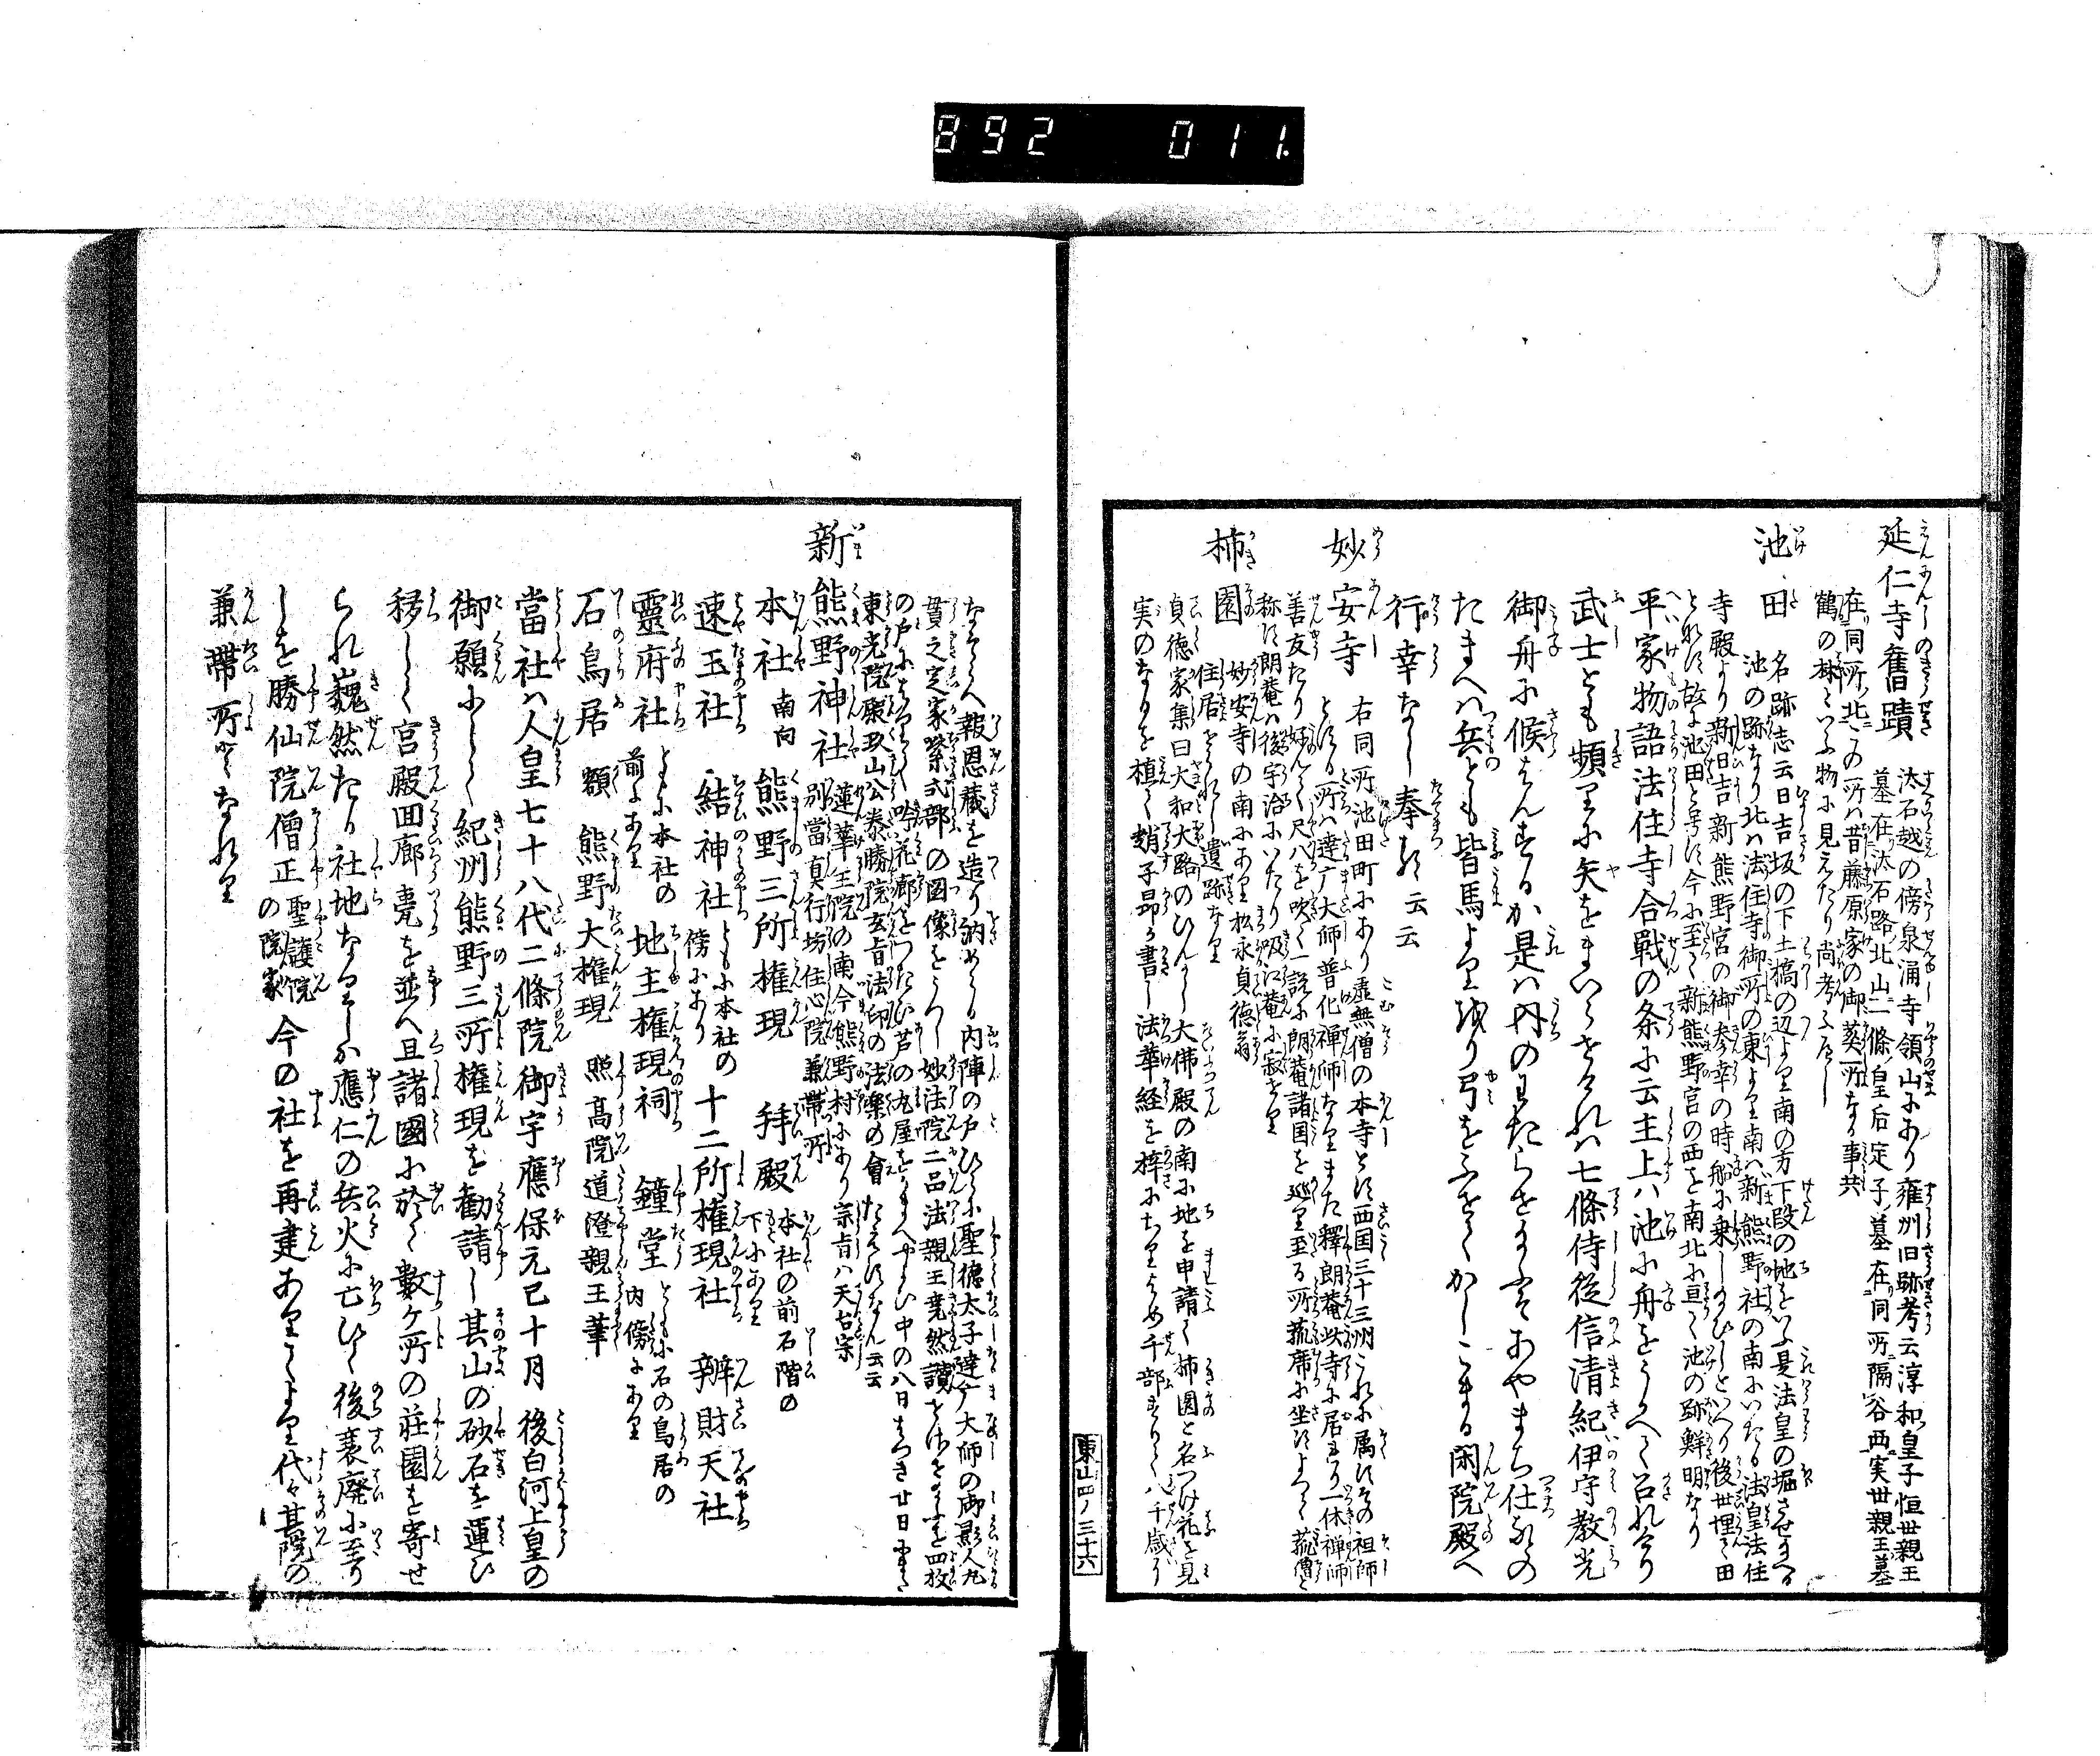 892 011.
延仁寺舊蹟 汰石越の傍泉涌寺領山にあり雍州旧跡考云淳和皇子恒世親王
墓在汰石路北山二條皇后定子墓在同所隔谷西実世親王墓
在同所北この所ハ昔藤原家の御葵所なる事共
鶴の林といふ物に見えたり尚考ふへし
池田 名跡志云日吉坂の下土橋の辺より南の方下段の地をいふ是法皇の堀させ給へる
池の跡なり北ハ法住寺御所の東より南ハ新熊野社の南にいたる法皇法住
寺殿より新日吉新熊野宮の御参幸の時船に乗し給ひしといへり後世埋て田
となれは故に池田と号す今に至て新熊野宮の西を南北に亘て池の跡鮮明なり
平家物語法住寺合戰の条に云主上ハ池に舟をうへて召れけり
武士とも頻りに矢をまいらせけれハ七條侍從信清紀伊守教光
御舟に候はんするか是ハ内のわたらせ給ふそあやまち仕るの
たまへハ兵とも皆馬より下り弓をふせてかしこまる閑院殿へ
行幸なし奉る云云
妙安寺 右同所池田町にあり虚無僧の本寺とす西国三十三州これに属すその祖師
とする所ハ達广大師普化禅師なりまた釋朗菴此寺に居れり一休禅師
善友たり好んて尺八を吹く一説に朗菴諸国を巡り至る所菰席に坐すよつて菰僧と
称す朗菴ハ後宇治にいたり吸江菴に寂せり
柿園 妙安寺の南にあり松永貞徳翁
住居せられし遺跡なり
貞徳家集曰大和大路のひんかし大佛殿の南に地を申請て柿園と名つけ花を見
実のなるを植て趙子昂か書し法華経を梓にちりはめ千部すりて八千歳り
東山四ノ三十六
なそらへ報恩蔵を造り納める内陣の戸ひらに聖徳太子達广大師の御影人丸
貫之定家紫式部の図像をうつし妙法院二品法親王尭然讃をはせ給ふを四枚
の戸にはりて吟花廊をつたひ芦の丸屋をかまへやよひ中の八日はつき廿日にまた
東光院聚玖山公泰勝院玄旨法印の法楽の會たえすなん云云
新熊野神社 蓮華王院の南今熊野村にあり宗旨ハ天台宗
別當真行坊住心院兼帯所
本社 南向 熊野三所權現 拜殿 本社の前石階の
下にあり
速玉社 結神社 ともに本社の
傍にあり 十二所権現社 辨財天社
靈府社 ともに本社の
前にあり 地主権現祠 鐘堂 ともに石の鳥居の
内傍にあり
石鳥居 額 熊野大権現 照高院道澄親王筆
當社ハ人皇七十八代二條院御宇應保元已十月後白河上皇の
御願にして紀州熊野三所権現を勸請し其山の砂石を運ひ
移して宮殿回廊甍を並へ且諸國に於て數ケ所の荘園を寄せ
られ巍然たる社地なりしか應仁の兵火に亡ひて後衰廃に至り
しを勝仙院僧正聖護院
の院家今の社を再建ありてより代々其院の
兼帯所とはなれり